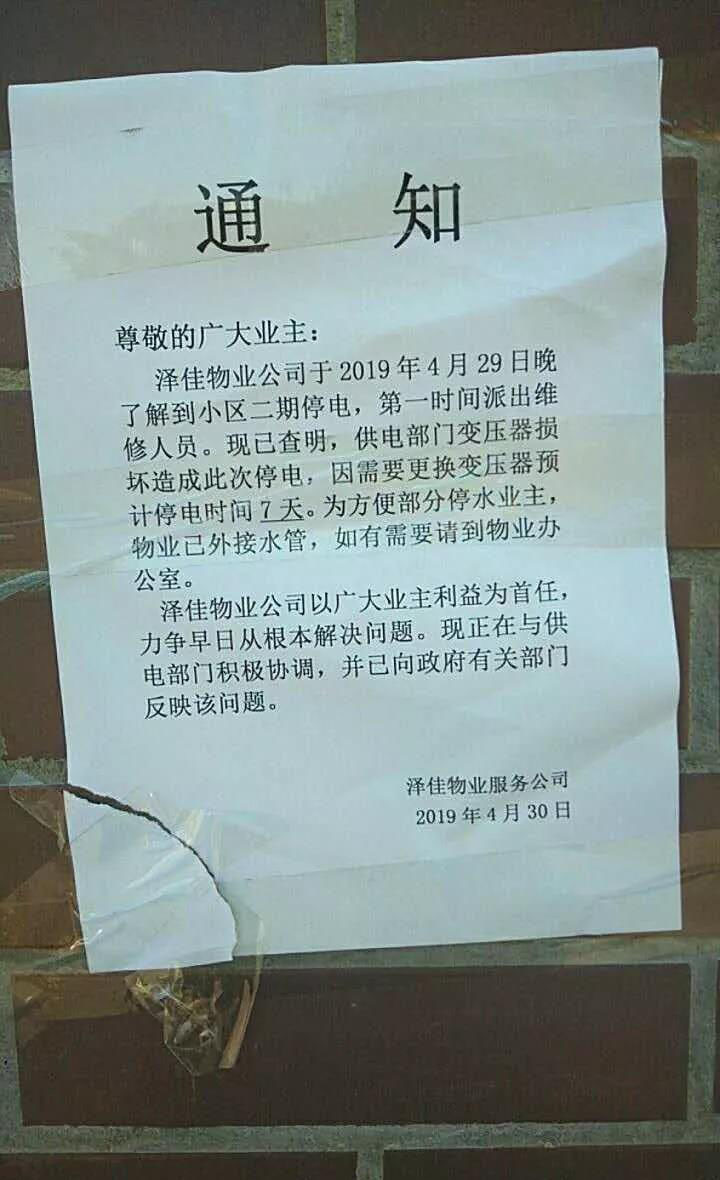 通 知
尊敬的广大业主：
泽佳物业公司于 2019 年 4 月 29 日晚
了解到小区二期停电，第一时间派出维
修人员。现已查明，供电部门变压器损
坏造成此次停电，因需要更换变压器预
计停电时间 7 天。为方便部分停水业主，
物业已外接水管，如有需要请到物业办
公室。
泽佳物业公司以广大业主利益为首任，
力争早日从根本解决问题。现正在与供
电部门积极协调，并已向政府有关部门
反映该问题。
泽佳物业服务公司
2019 年 4 月 30 日